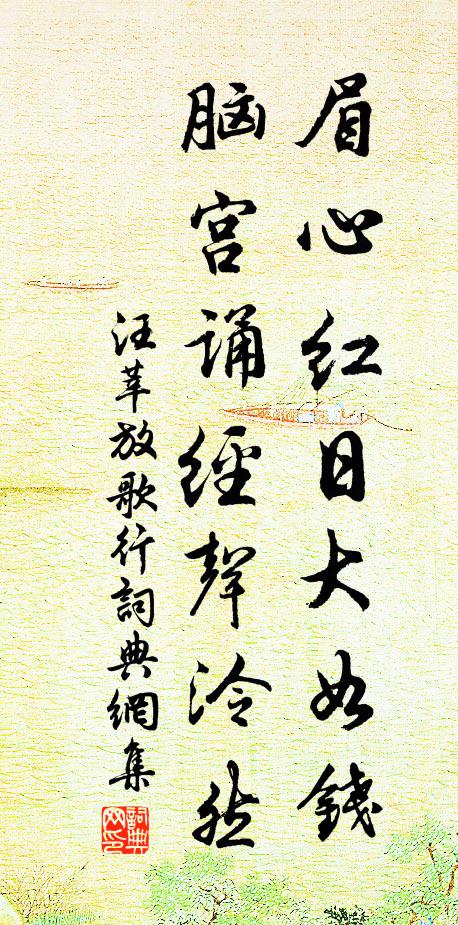 眉心红日大如錢
脑宫诵經聲泠然
汪莘放歌行詞典網集
詞典网印